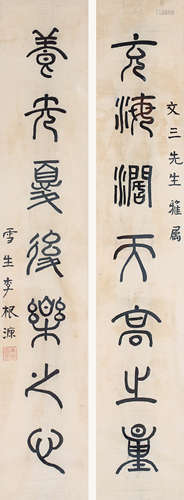 文三先生雅屬
充海濶天高之量
養先憂後樂之心
雪生李根源